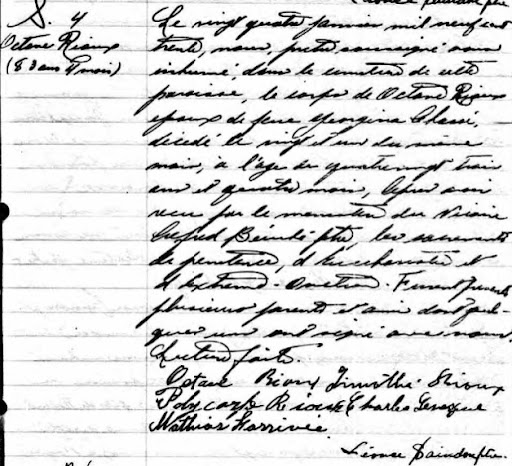 S. 4
Octave Rioux
(83 ans 4 mois)
Le vingt quatre janvier mil neuf cent
trente, nous, prêtre soussigné avons
inhumé, dans le cimetière de cette
paroisse, le corps de Octave Rioux
époux de feue Georgina
décédé le vingt et un du même
mois, à l'âge de quatrevingt trois
ans et quatre mois, après avoir
reçu par le ministère du Vicaire
ptre, les sacrements
de pénitence, d'Eucharistie et
d'Extrême-Onction. Furent présents
plusieurs parents et amis dont quel-
ques uns ont signé avec nous.
Lecture faite.
Octave Rioux Timothé Rioux
Polycarpe Rioux Charles Levesque
Mathias Larrivée
ptre.